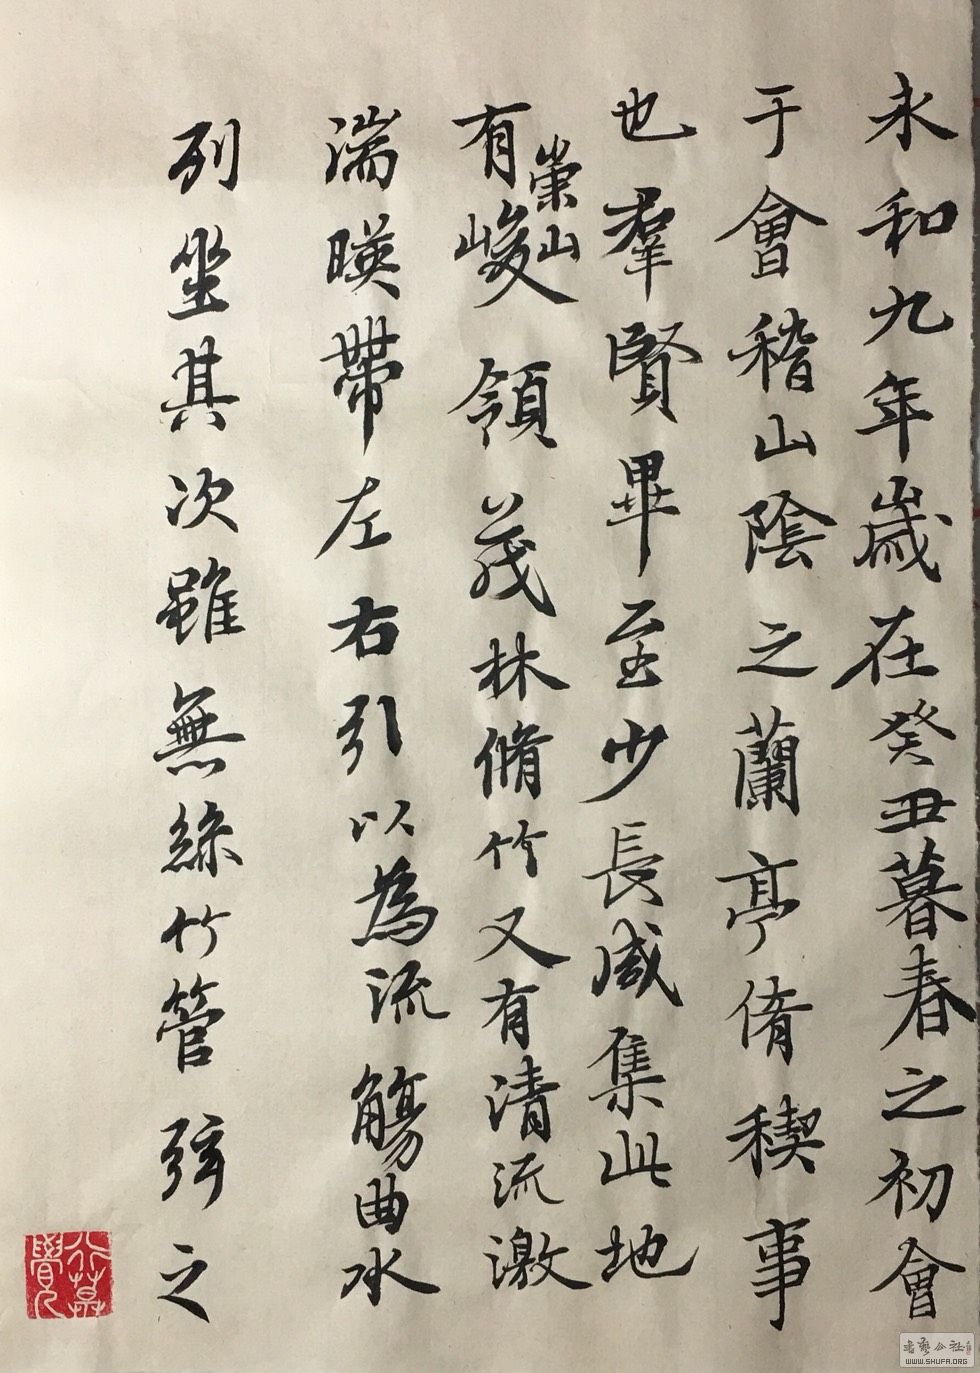 永和九年歲在癸丑暮春之初會
于會稽山陰之蘭亭脩稧事
也羣賢畢至少長咸集此地
有崇山峻領茂林脩竹又有清流激
湍暎帶左右引以為流觴曲水
列坐其次雖無絲竹管弦之
書藝公社
WWW.SHUFA.ORG